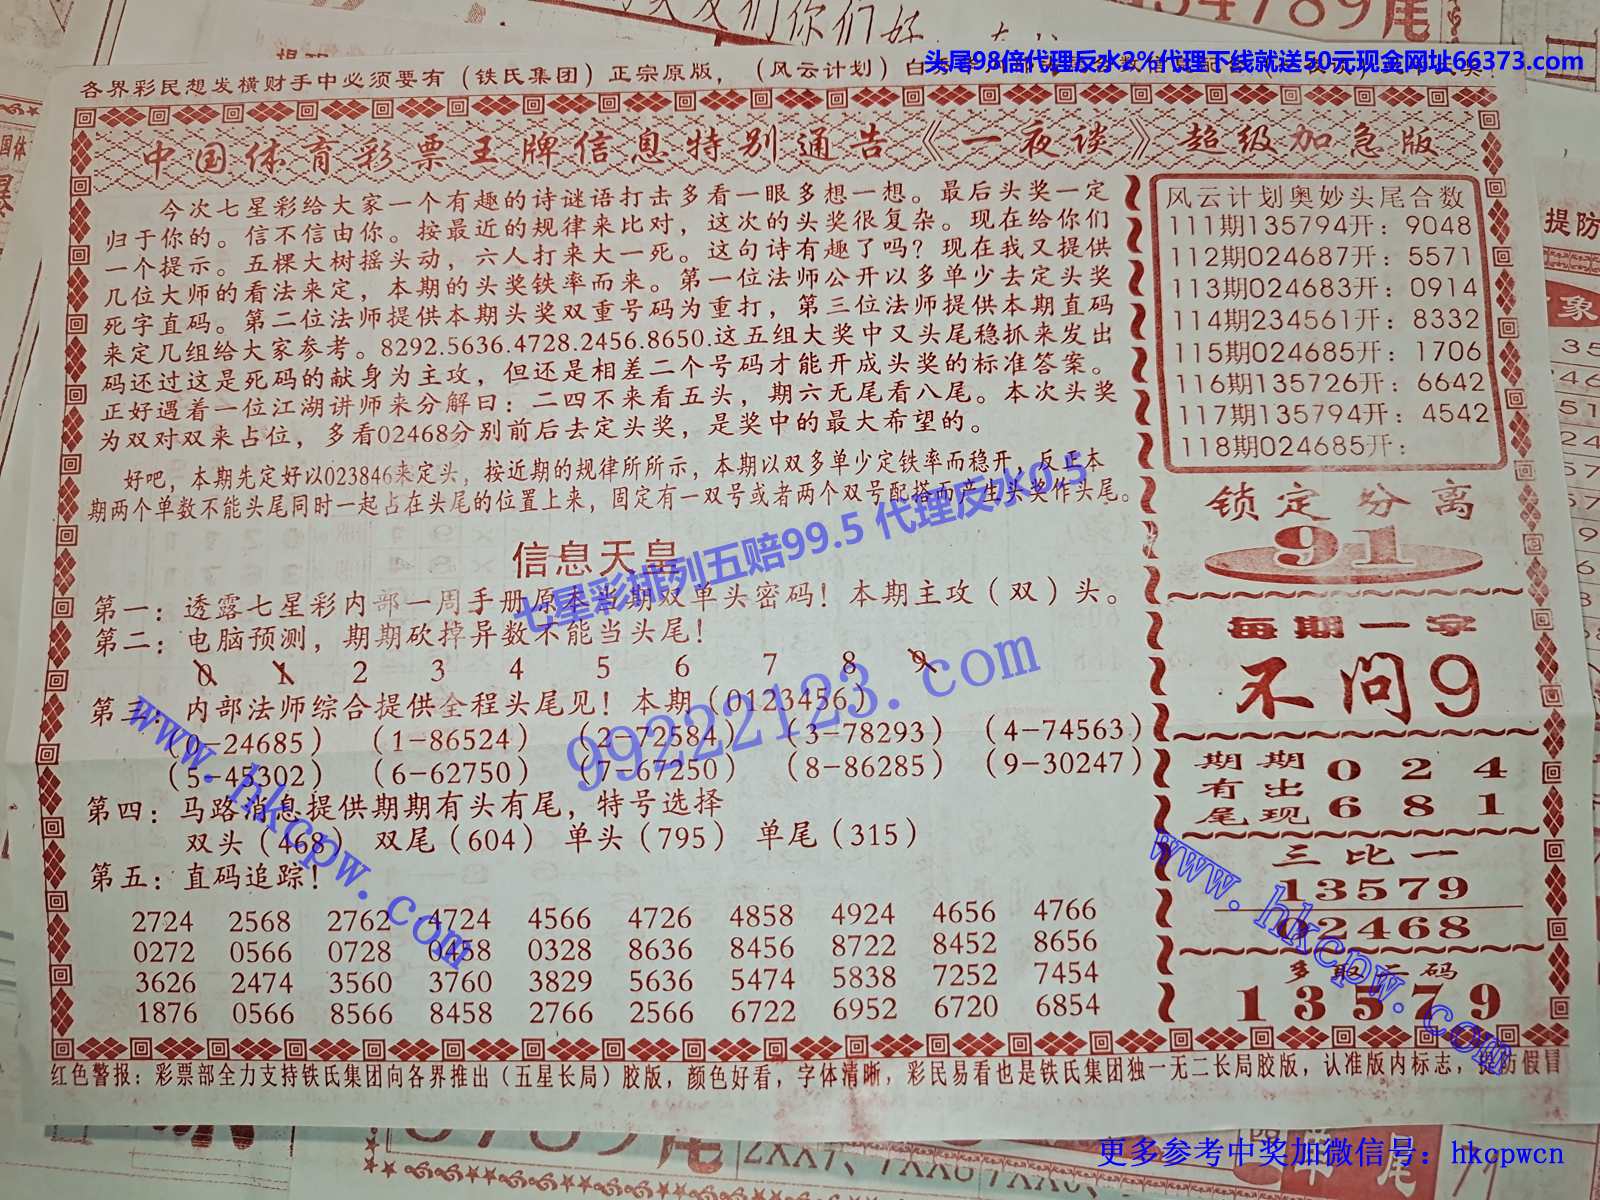 头尾98倍代理反水2%代理下线就送50元现金网址66373.com
各界彩民想发横财手中必须要有（铁氏集团）正宗原版，（风云计划）白
中国体育彩票王牌信息特别通告《一夜谈》超级加急版
今次七星彩给大家一个有趣的诗谜语打击多看一眼多想一想。最后头奖一定
归于你的。信不信由你。按最近的规律来比对，这次的头奖很复杂。现在给你们
一个提示。五棵大树摇头动，六人打来大一死。这句诗有趣了吗？现在我又提供
几位大师的看法来定，本期的头奖铁率而来。第一位法师公开以多单少去定头奖
死字直码。第二位法师提供本期头奖双重号码为重打，第三位法师提供本期直码
来定几组给大家参考。8292.5636.4728.2456.8650.这五组大奖中又头尾稳抓来发出
码还过这是死码的献身为主攻，但还是相差二个号码才能开成头奖的标准答案。
正好遇着一位江湖讲师来分解曰：二四不来看五头，期六无尾看八尾。本次头奖
为双对双来占位，多看02468分别前后去定头奖，是奖中的最大希望的。
好吧，本期先定好以023846来定头，按近期的规律所所示，本期以双多单少定铁率而稳开，反正本
期两个单数不能头尾同时一起占在头尾的位置上来，固定有一双号或者两个双号配搭而产生头奖作头尾。
信息天皇
七星彩排列五赔99.5 代理反水0.5
第一：透露七星彩内部一周手册原本当期双单头密码！本期主攻（双）头。
第二：电脑预测，期期砍掉异数不能当头尾！
0 1 2 3 4 5 6 7 8 9
第三：内部法师综合提供全程头尾见！本期（0123456）
（0-24685） （1-86524） （2-72584） （3-78293） （4-74563）
（5-45302） （6-62750） （7-67250） （8-86285） （9-30247）
99222123.com
www.hkcpw.com
第四：马路消息提供期期有头有尾，特号选择
双头（468） 双尾（604） 单头（795） 单尾（315）
第五：直码追踪！
2724 2568 2762 4724 4566 4726 4858 4924 4656 4766
0272 0566 0728 0458 0328 8636 8456 8722 8452 8656
3626 2474 3560 3760 3829 5636 5474 5838 7252 7454
1876 0566 8566 8458 2766 2566 6722 6952 6720 6854
风云计划奥妙头尾合数
111期135794开：9048
112期024687开：5571
113期024683开：0914
114期234561开：8332
115期024685开：1706
116期135726开：6642
117期135794开：4542
118期024685开：
锁定分离
91
每期一字
不问9
期期有出尾现
0 2 4
6 8 1
三比一
13579
02468
www.hkcpw.com
多取二码
13579
红色警报：彩票部全力支持铁氏集团向各界推出（五星长局）胶版，颜色好看，字体清晰，彩民易看也是铁氏集团独一无二长局胶版，认准版内标志，提防假冒
更多参考中奖加微信号：hkcpwcn